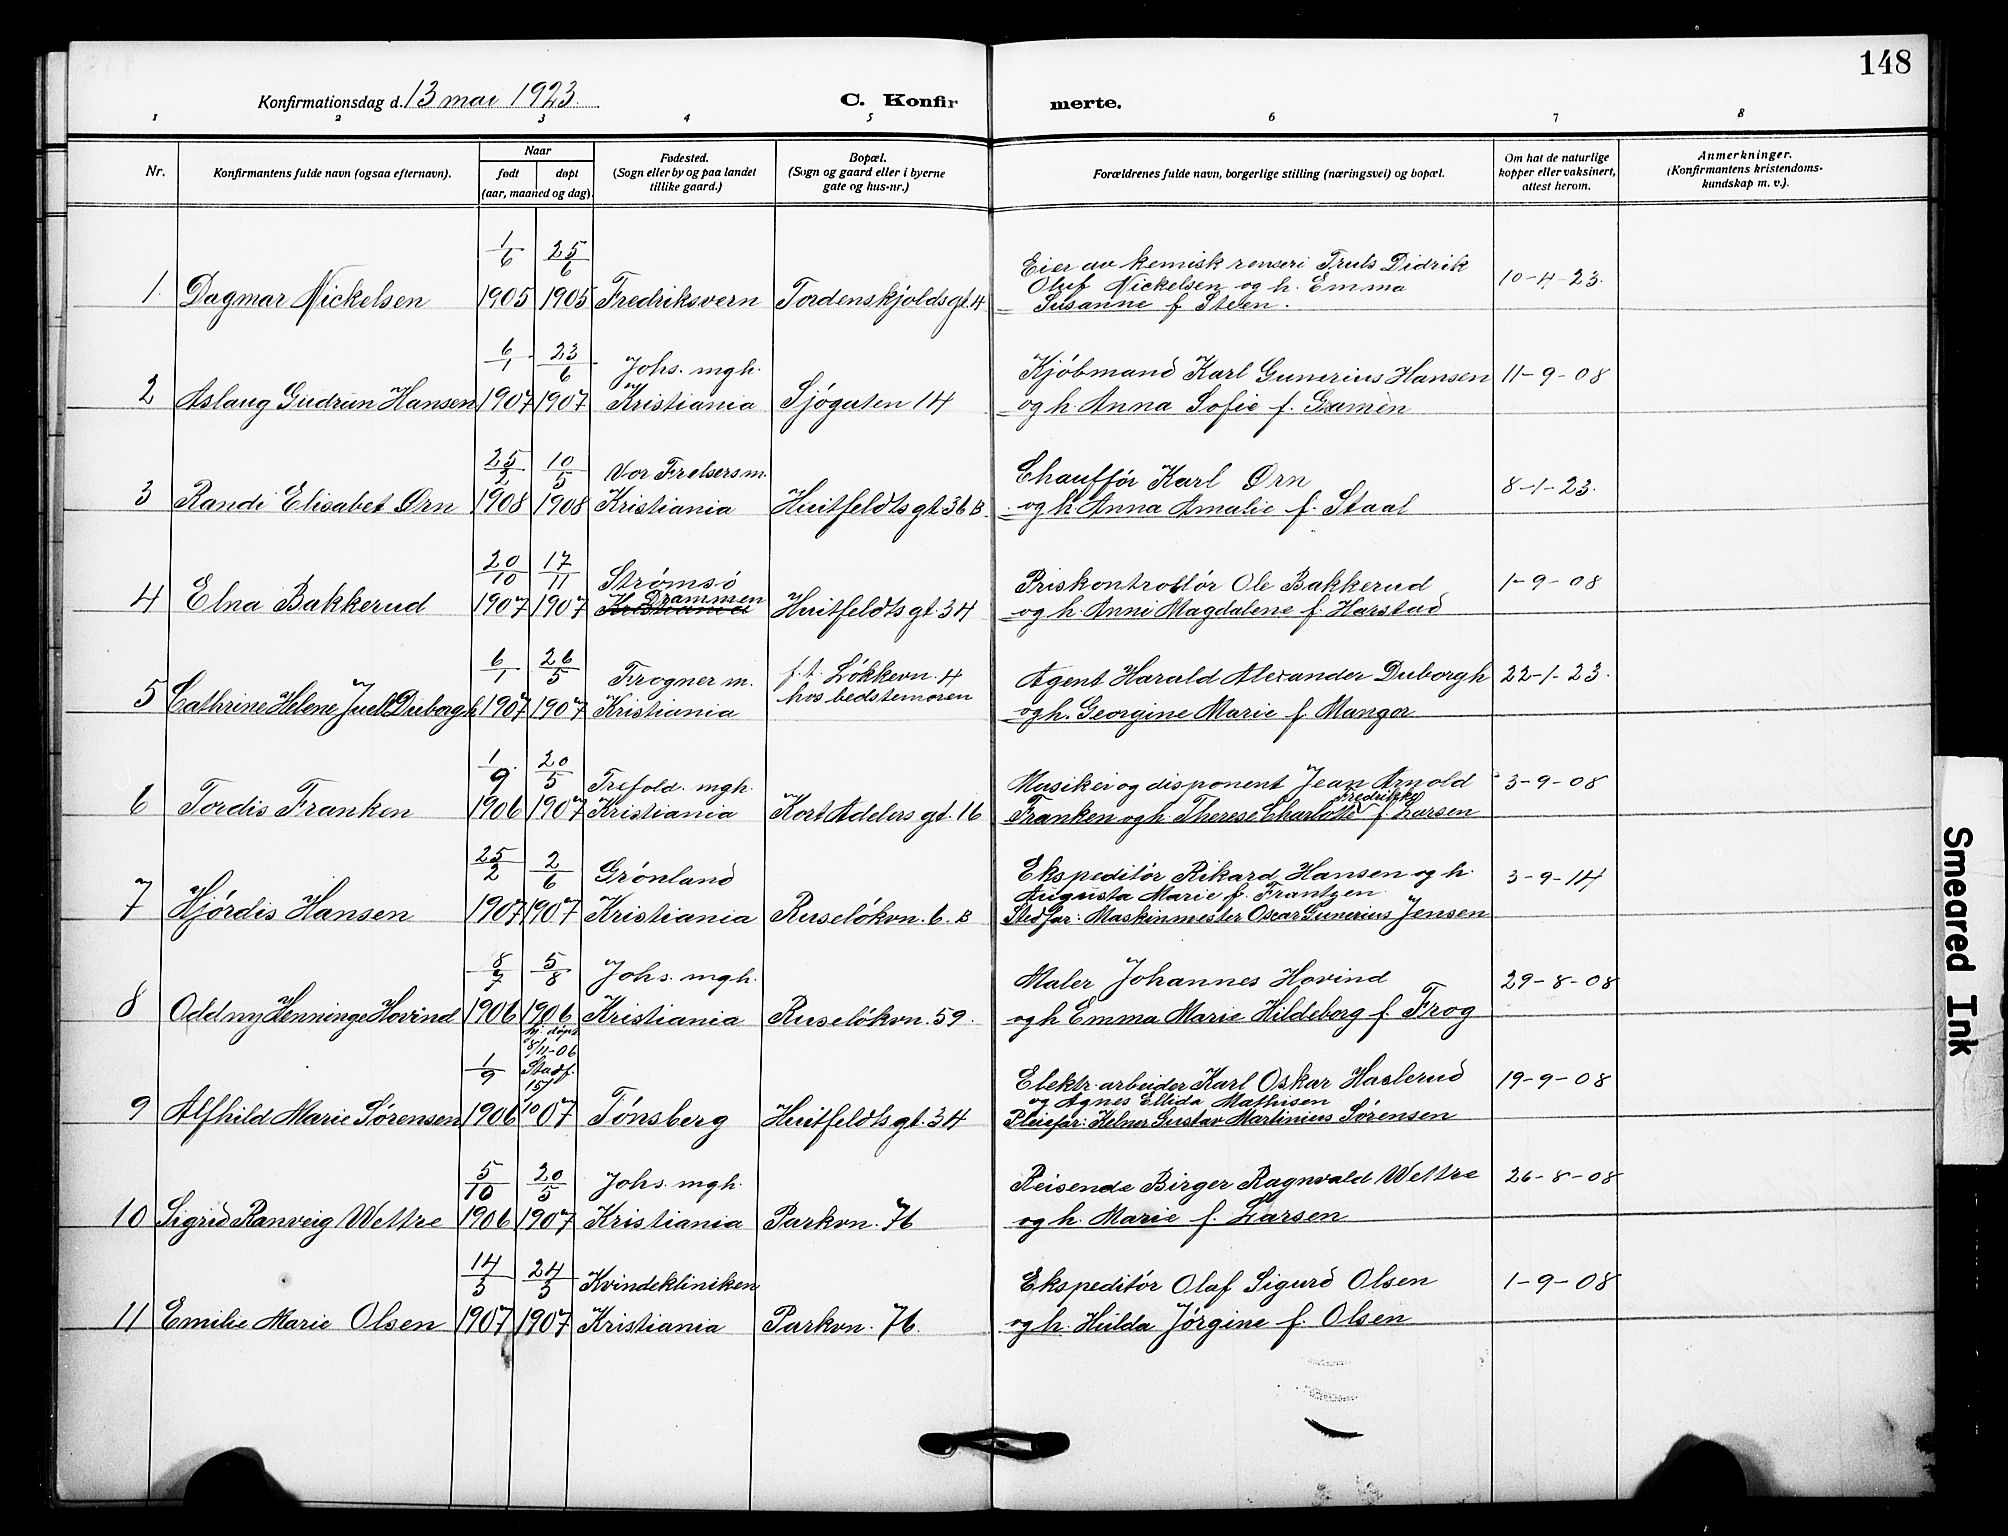 148
Konfirmationsdag d. 13 mai 1923.
C. Konfir merte.
1 2 3 4 5 6 7 8
Nr. Konfirmantens fulde navn (ogsaa efternavn).
Naar
født døpt
(aar, maaned og dag).
Fødested.
(Sogn eller by og paa landet
tillike gaard.)
Bopæl.
(Sogn og gaard eller i byerne
gate og hus-nr.)
Forældrenes fulde navn, borgerlige stilling (næringsvei) og bopæl.
Om hat de naturlige
kopper eller vaksinert,
attest herom.
Anmerkninger.
(Konfirmantens kristendoms-
kundskap m. v.).
1/6 25/6
Eier av kemisk renseri Truls Didrik
1 Dagmar Nickelsen 1905 1905 Fredriksvern Tordenskjoldsgt. 4 Oluf Nickelsen og h. Emma 10-4-23.
Susanne f. Steen.
6/1 23/6 Johs. mgh. Kjöbmand Karl Gunerius Hansen 11-9-08
2 Aslaug Gudrun Hansen 1907 1907 Kristiania Sjögaten 14 og h. Anna Sofie f. Gramèn
25/2 10/5 Vor Frelsers m. Chaufför Karl Ørn 8-1-23.
3 Randi Elisabet Ørn 1908 1908 Kristiania Huitfeldtsgt. 36 B. og h. Anna Amalie f. Staal
20/10 17/11 Strømsö Priskontrollör Ole Bakkerud 1-9-08
Drammen
4 Elna Bakkerud 1907 1907 Kristiania Huitfeldtsgt. 34 og h. Anne Magdalene f. Harstad
6/1 26/5 Frogner m. f. t. Lökkevn. 4 Agent Harald Alexander Duborgh 22-1-23.
5 Cathrine Helene Juell Duborgh 1907 1907 Kristiania hos bedstemoren og h. Georgine Marie f. Mangor
1/9 20/5 Trefold. mgh. Musiker og disponent Jean Arnold 3-9-08
Fredrikke
6 Tordis Franken 1906 1907 Kristiania Kort Adelers gt. 16 Franken og h. Therese Charlotte f. Larsen
25/2 2/6 Grönland Ekspeditör Rikard Hansen og h. 3-9-14
Augusta Marie f. Frantzen
7 Hjördis Hansen 1907 1907 Kristiania Ruselökvn. 6. B Stedfar: Maskinmester Oscar Gunerius Jensen
8/7 5/8 Johs. mgh. Maler Johannes Hovind 29-8-08
8 Oddny Henninge Hovind 1906 1906 Kristiania Ruselökvn. 59. og h Emma Marie Hildeborg f. Frog
hj. döpt
8/11-06
1/9 Stadf. Elektr. arbeider Karl Oskar Haslerud 19-9-08
15/ og Agnes Ellida Mathisen
9 Alfhild Marie Sörensen 1906 10 07 Tönsberg Huitfeldtsgt. 34 Pleiefar: Kelner Gustav Martinius Sörensen
5/10 20/5 Johs. mgh. Reisende Birger Ragnvald Wettre 26-8-08
10 Sigrid Ranveig Wettre 1906 1907 Kristiania Parkvn. 76 og h. Marie f. Larsen
14/3 24/3 Kvindekliniken Ekspeditör Olaf Sigurd Olsen 1-9-08
11 Emilie Marie Olsen 1907 1907 Kristiania Parkvn. 76. og h. Hilda Jörgine f. Olsen
Smeared Ink